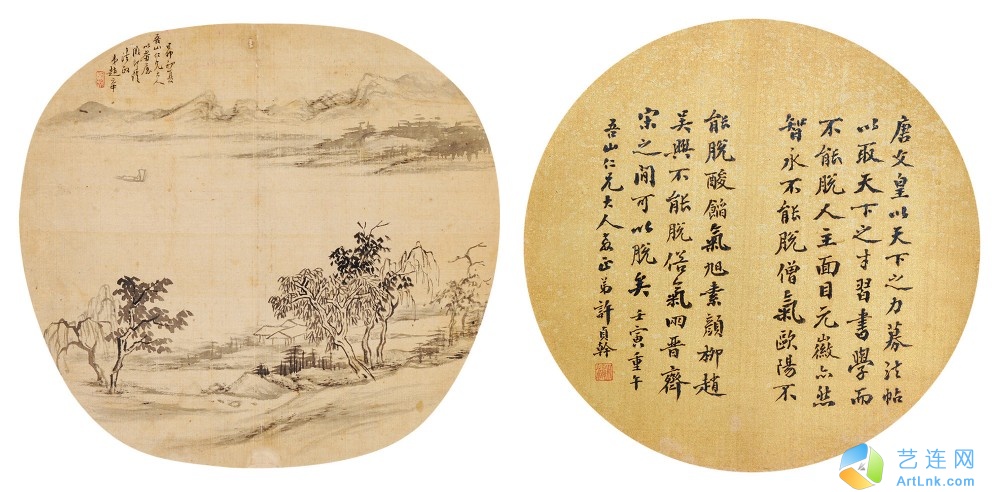 吾山仁兄大人
唐文皇以天下之力募法帖
以取天下之才習書學而
不能脫人主面目元徽亦然
智永不能脫僧氣歐陽不
能脫酸餡氣旭素顏柳趙
吳興不能脫俗氣兩晉齊
宋之間可以脫矣壬寅重午
吾山仁兄大人教正弟許貞幹
艺连网
ArtLnk.com